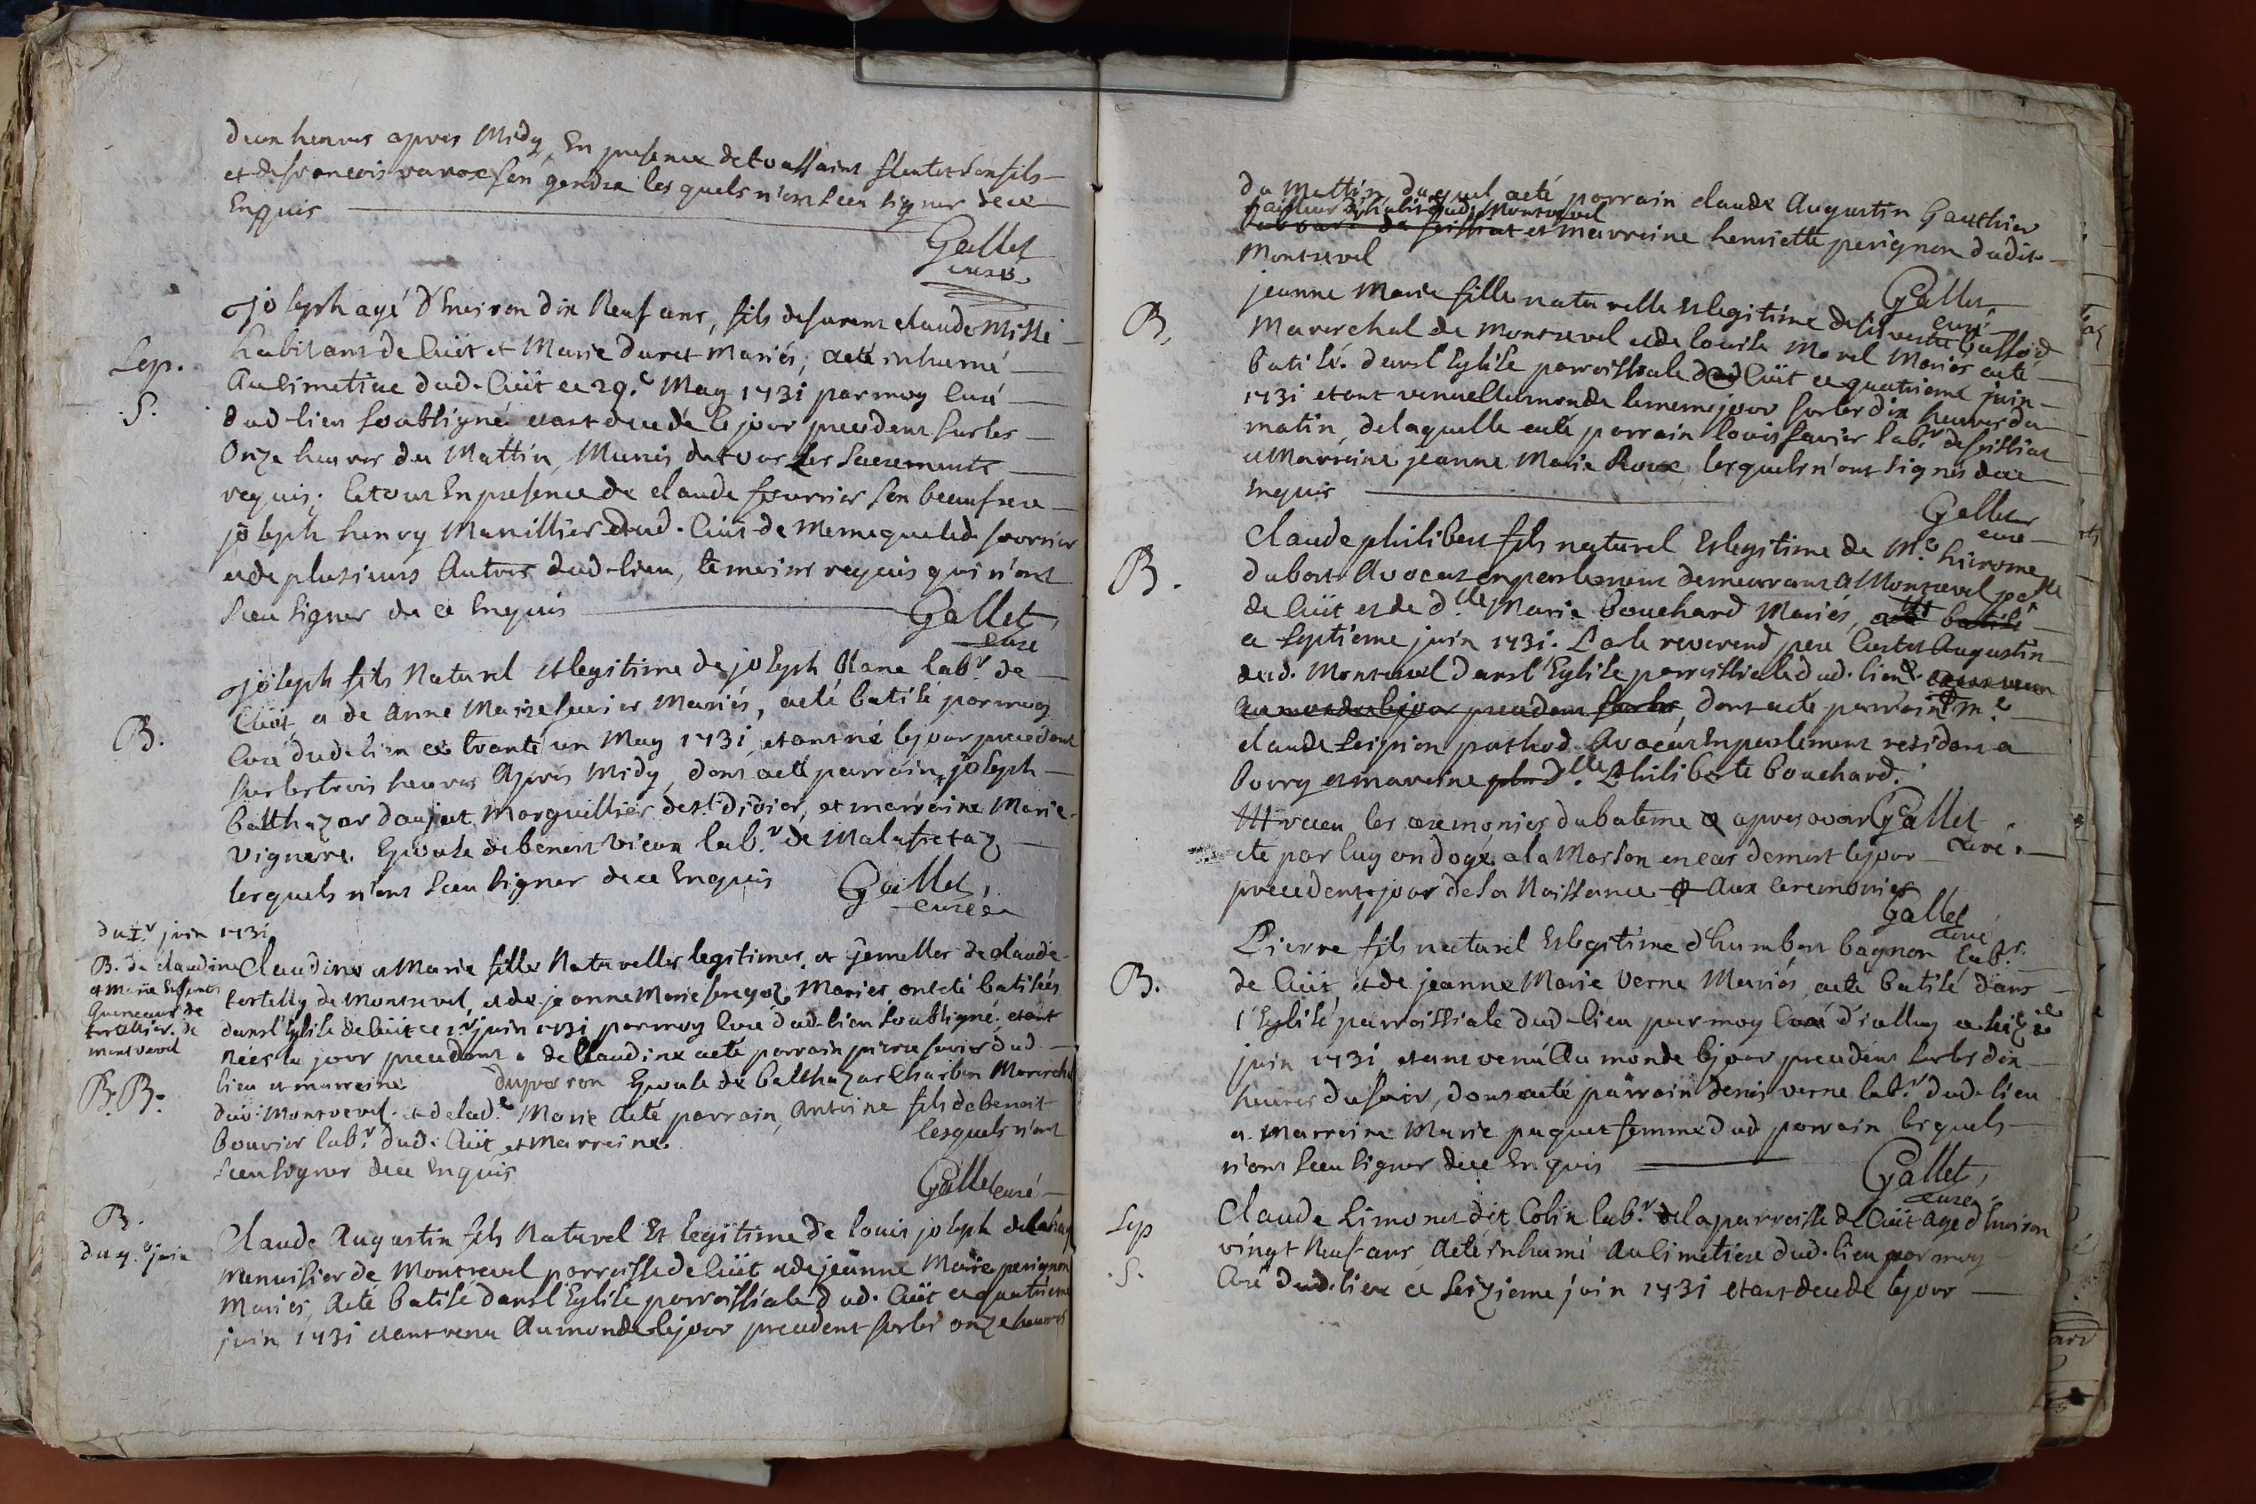 d'un heures apres Midy, En presence de toussaint fils
et de francois son gendre les quels n'ont sceu signer de ce
Enquis
Gallet
curé
joseph agé d'Environ dix Neuf ans, fils de furent claude Misse
habitant de Cuit et Marie Duret Mariés, a eté inhumé
Sep. Au Cimetiere dud. Cuit ce 29.e May 1731 par moy Curé
S. dud lieu soubsigné etant decedé le jour precedent sur les
Onze heures du Mattin, Munis de tous les Sacrements
requis; le tout En presence de claude fourrier son beaufrere
joseph henry Manillier dud. Cuit de Meme que led fourrier
et de plusieurs Autres dud. lieu, temoins requis qui n'ont
sceu signer de ce Enquis
Gallet
curé
joseph fils Naturel et legitime de joseph blanc lab.r de
Cuit, et de Anne Marie Mariés, a eté batisé par moy
B. Curé dud. lieu ce trante un May 1731 etant né le jour precedent
sur les trois heures Apres Midy, dont a eté parrain, joseph
balthazar daujat Marguillier de st. didier, et marraine Marie
vignere. Epouse de benoit vieux lab.r de Malafretaz
lesquels n'ont sceu signer de ce Enquis
Gallet,
curé
du 1.r juin 1731
B. de claudine
et Marie
de
Montrevel
B. B.
Claudine et Marie filles Naturelles legitimes et jemelles de claude
de Montrevel, et de jeanne Marie Mariés ont eté batisées
dans l'Eglise de Cuit ce 1.r juin 1731 par moy Curé dud. lieu soubsigné. etant
nées le jour precedent de Claudine a eté parrain pierre dud.
lieu et marraine duperron Epouse de balthazar Charbon Marechal
dud. Montrevel. et de lad.e Marie a eté parrain, Antoine fils de benoit
bouvier lab.r dud. Cuit et Marraine lesquels n'ont
sceu signer de ce Enquis
Gallet curé
B.
du 4.e juin
Claude Augustin fils Naturel Et legitime de louis joseph
Menuisier de Montrevel parroisse de Cuit et de jeanne Marie perignon
Mariés, a eté batisé dans l'Eglise parroissiale dud. Cuit ce quatrieme
juin 1731 etant venu Au monde le jour precedent sur les onze heures
du Mattin, duquel a eté parrain claude Augustin Gauthier
et marraine henriette perignon dudit
Montrevel
Gallet
curé
B. jeanne Marie fille naturelle et legitime de silvestre
Marechal de Montrevel et de louise Morel Mariés a eté
batisé dans l'Eglise parroissiale dud Cuit ce quatrieme juin
1731 etant venue au monde le meme jour sur les dix heures du
matin, de laquelle a eté parrain louis lab.r de
et Marraine jeanne Marie Roux lesquels n'ont signés de ce
Enquis
Gallet
curé
B. Claude philibert fils naturel Et legitime de M.e hierome
dubost Avocat en parlement demeurant a Montrevel p.sse
de Cuit et de d.lle Marie bouchard Mariés, a eté batisé
ce septieme juin 1731. Par le reverend pere Augustin
dud. Montrevel dans l'Eglise parroissiale dud. lieu
au monde le jour precedent sur les, dont a eté parrain M.e
claude scipion pathod Avocat En parlement resident a
bourg et marraine d.lle Philiberte bouchard.
receu les ceremonies du bateme apres avoir
eté par luy ondoyé a la Maison en cas de mort le jour
precedent, jour de la Naissance aux ceremonies
Gallet
curé
Gallet
curé
Pierre fils naturel Et legitime d'humbert bagnon lab.r
B. de Cuit et de jeanne Marie Verne Mariés a eté batisé dans
l'Eglise parroissiale dud. lieu par moy Curé d'icelluy ce
juin 1731 etant venu Au monde le jour precedent sur les dix
heures du soir, dont a eté parrain denis verne lab.r dud. lieu
et Marraine Marie paquet femme dud parrain lesquels
n'ont sceu signer de ce Enquis
Gallet,
curé
Sep
S.
Claude Simonet dit Colin lab.r de la parroisse de Cuit agé d'Environ
vingt Neuf ans a eté inhumé Au Cimetiere dud. lieu par moy
Curé dud. lieu ce seizieme juin 1731 etant decedé le jour